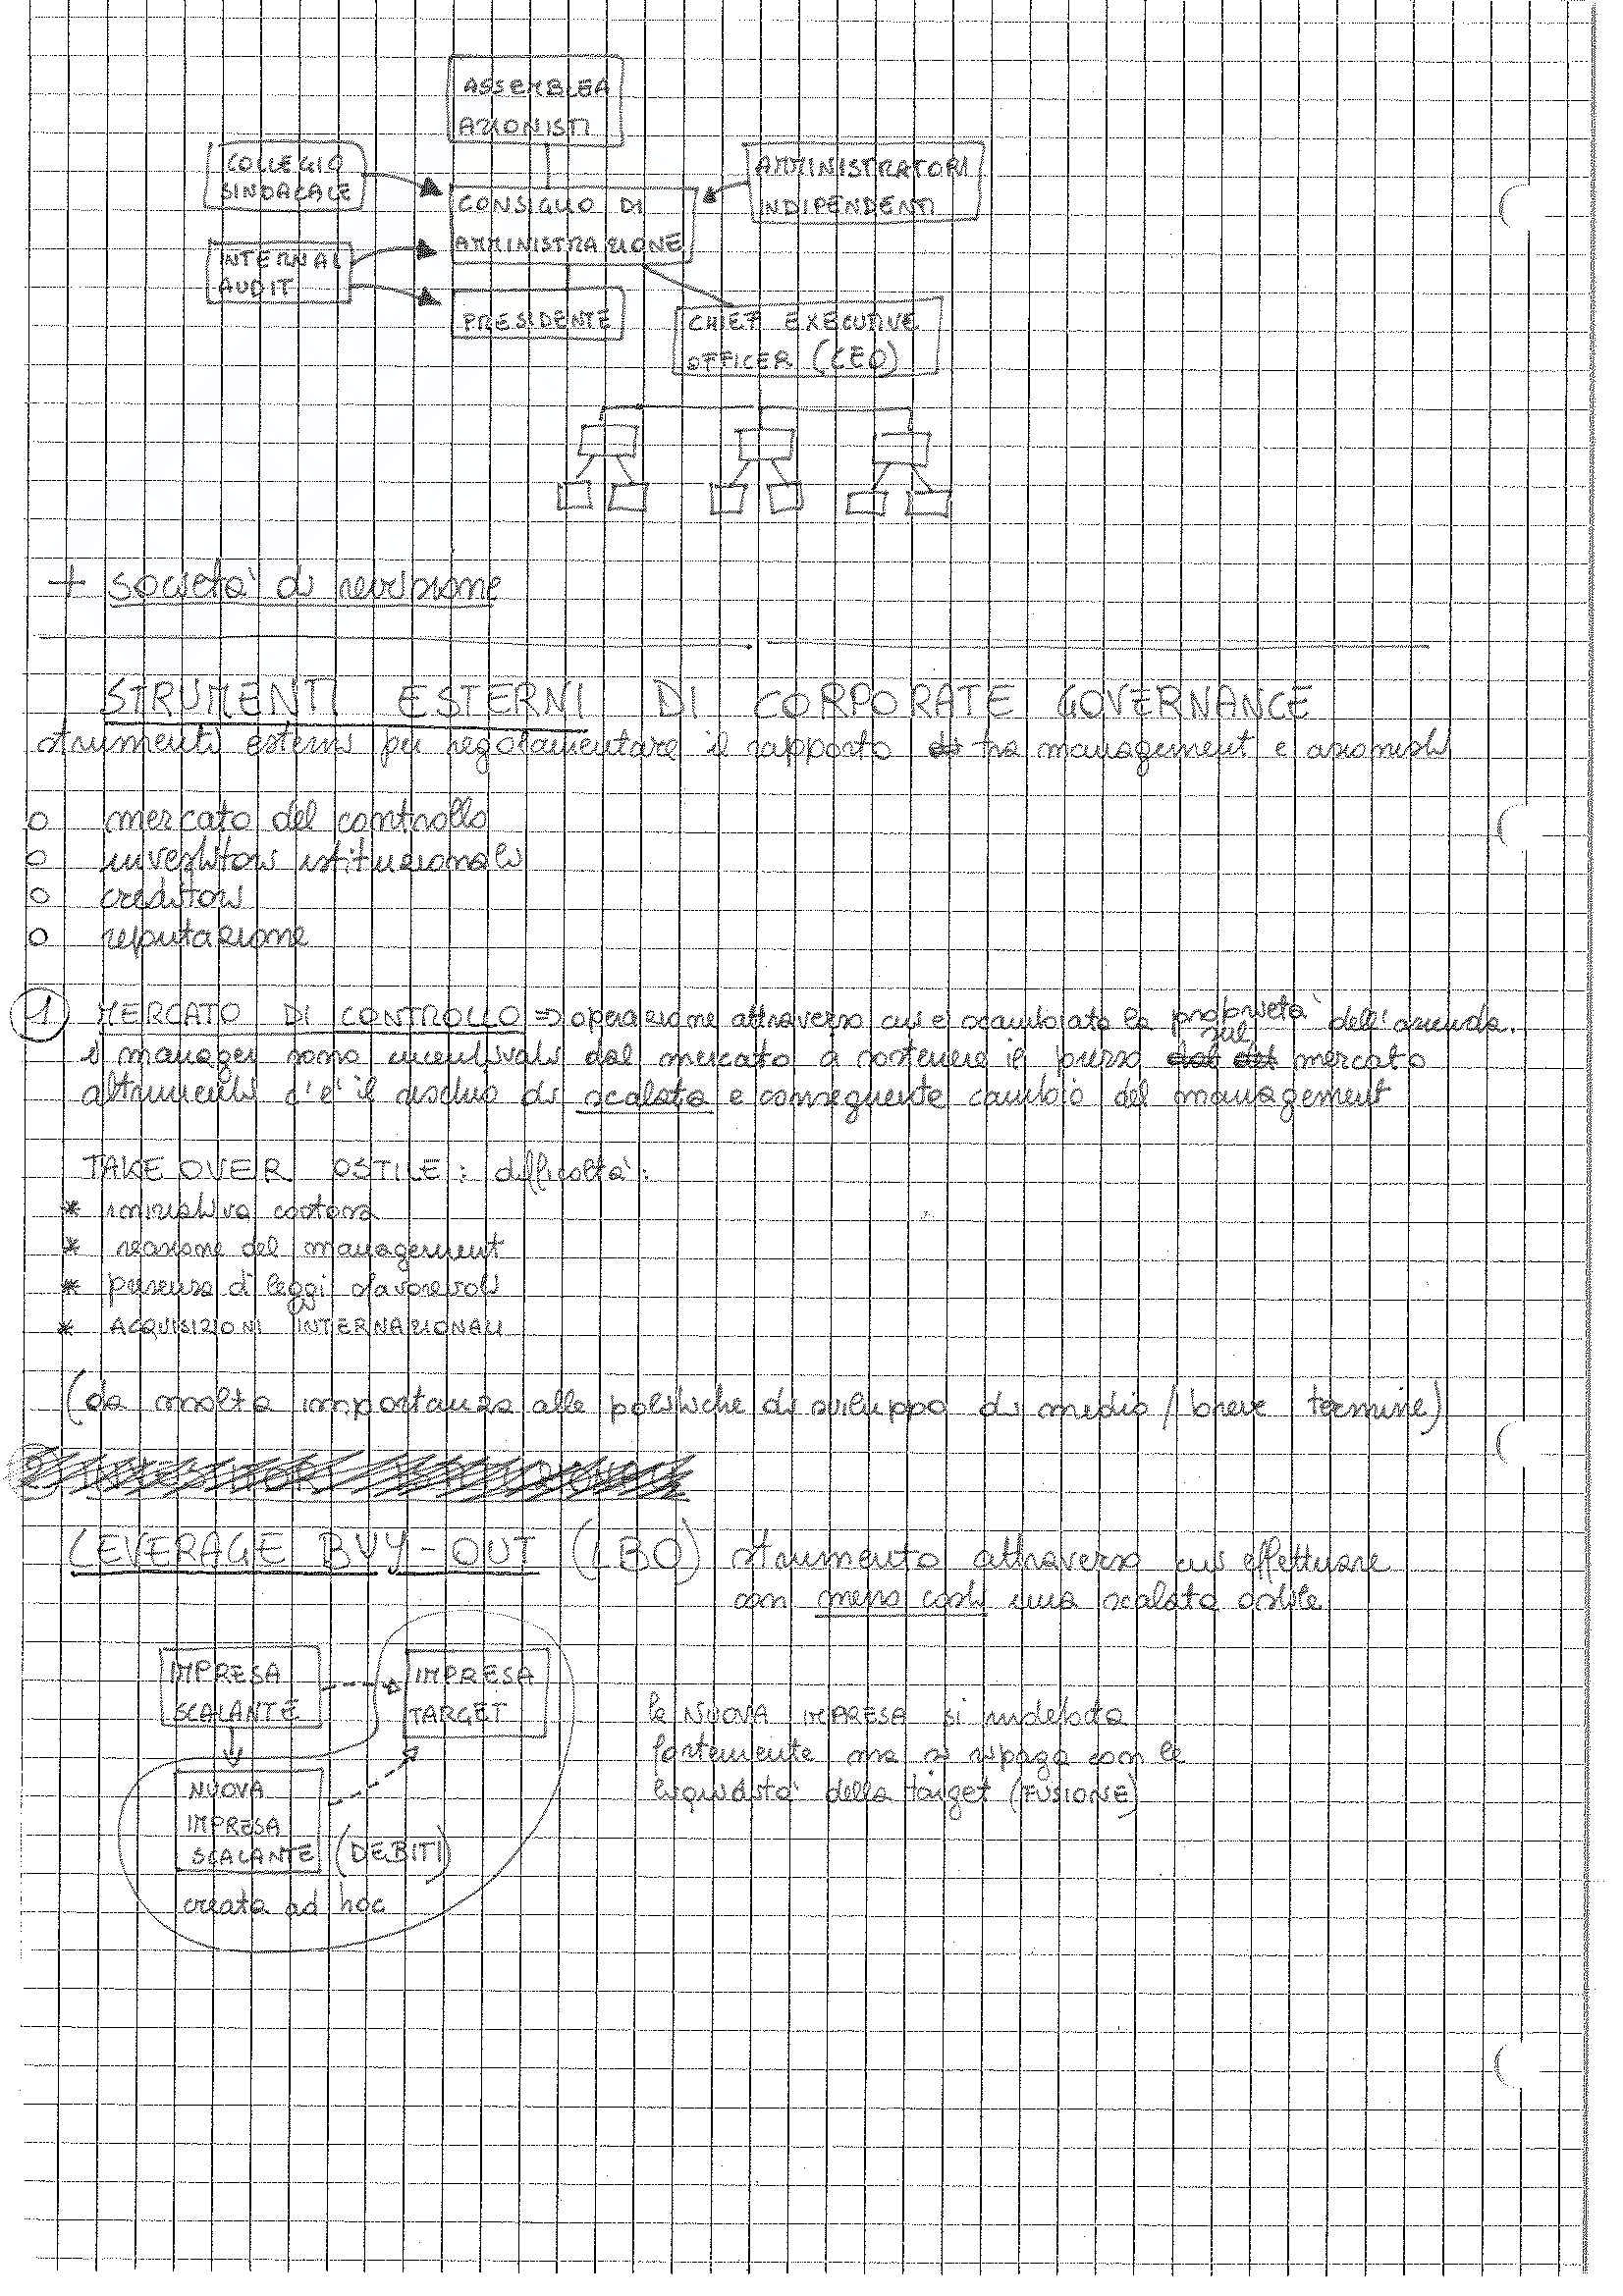 ASSEMBLEA
AZIONISTI
COLLEGIO
SINDACALE
AMMINISTRATORI
INDIPENDENTI
CONSIGLIO DI
AMMINISTRAZIONE
INTERNAL
AUDIT
PRESIDENTE
CHIEF EXECUTIVE
OFFICER (CEO)
+ società di revisione
STRUMENTI ESTERNI DI CORPORATE GOVERNANCE
strumenti esterni per regolamentare il rapporto tra management e azionisti
o mercato del controllo
o investitori istituzionali
o creditori
o reputazione
1 MERCATO DI CONTROLLO => operazione attraverso cui è scambiata la proprietà dell'azienda.
i manager sono incentivati dal mercato a sostenere il prezzo sul mercato
altrimenti c'è il rischio di scalata e conseguente cambio del management
TAKE OVER OSTILE: difficoltà:
* iniziativa costosa
* reazione del management
* presenza di leggi sfavorevoli
* ACQUISIZIONI INTERNAZIONALI
(da molta importanza alle politiche di sviluppo di medio/breve termine)
LEVERAGE BUY-OUT (LBO) strumento attraverso cui effettuare
con meno costi una scalata ostile
IMPRESA
SCALANTE
IMPRESA
TARGET
la NUOVA IMPRESA si indebita
fortemente ma si ripaga con le
liquidità della target (FUSIONE)
NUOVA
IMPRESA
SCALANTE (DEBITI)
creata ad hoc